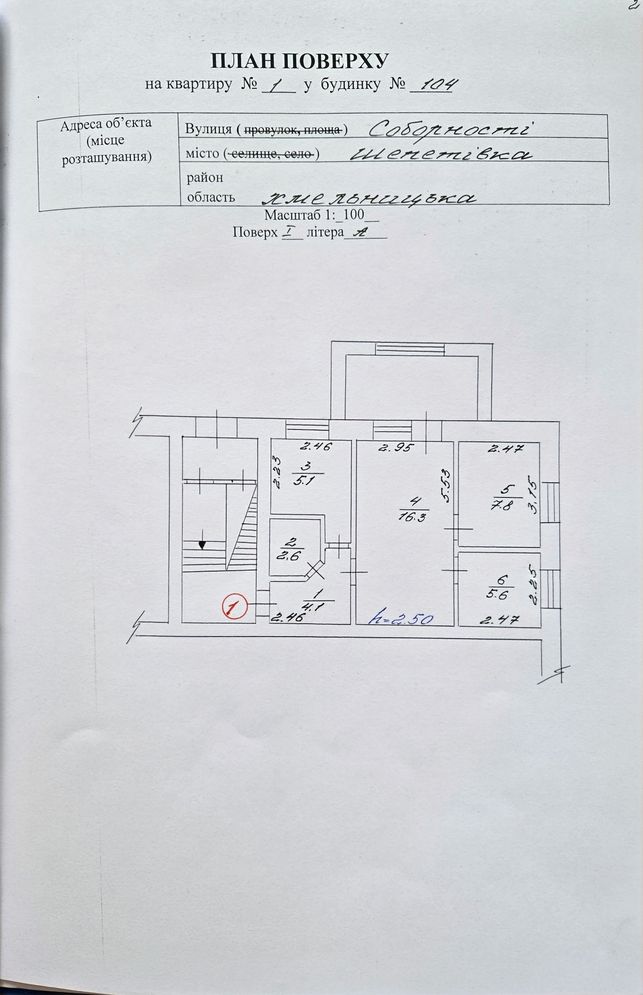 2
ПЛАН ПОВЕРХУ
на квартиру № 1 у будинку № 104
Адреса об’єкта
(місце
розташування)
Вулиця ( провулок, площа ) Соборності
місто ( селище, село ) Шепетівка
район
область Хмельницька
Масштаб 1:_100__
Поверх I літера А
2.46
2.95
2.47
2.23
3
5.1
4
16.3
5.53
5
7.8
3.15
2
2.6
6
5.6
2.25
1
1
4.1
2.46
h=2.50
2.47